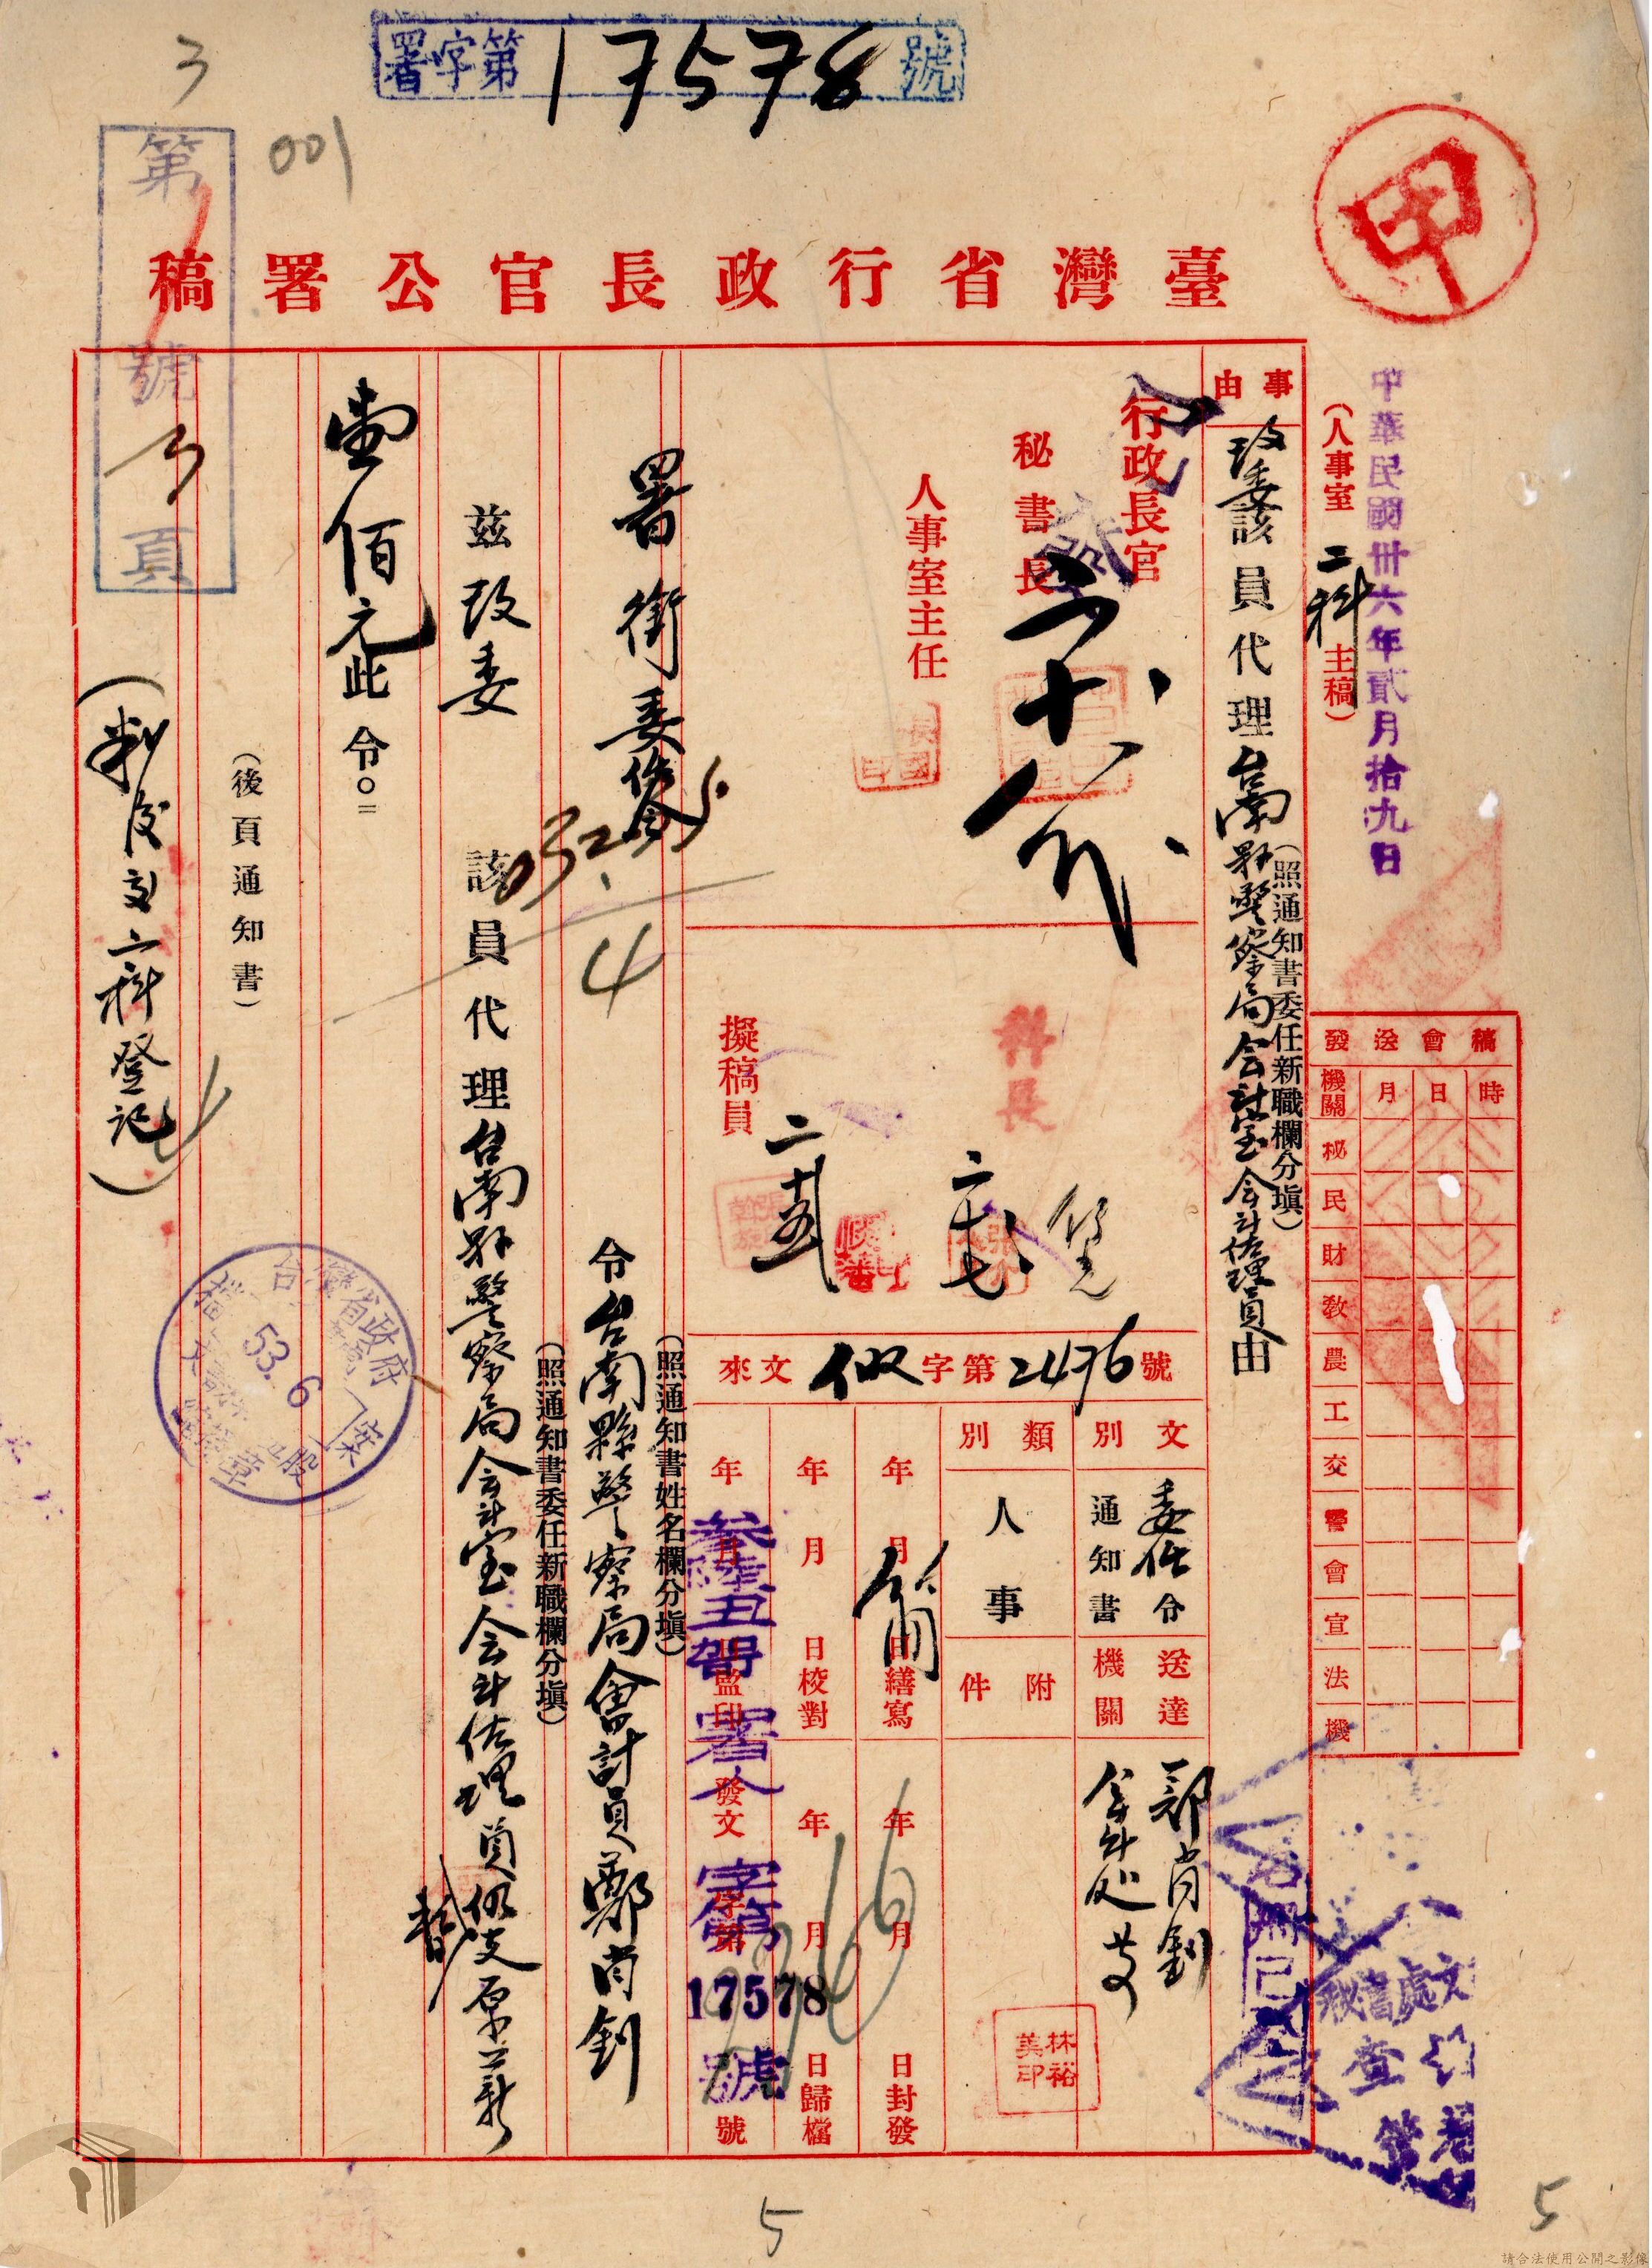 署字第17578號
3
001
第1號3頁
甲
臺灣省行政長官公署稿
中華民國卅六年貳月拾九日
(人事室二科主稿)
事由
改委該員代理台南縣警察局会計室会計佐理員由
(照通知書委任新職欄分填)
行政長官
秘書長
人事室主任
科長
擬稿員
來文
字第2476號
文別
委任令
通知書
類別
人事
送達機關
鄭肖釗
会計処
附件
年月日繕寫
年月日校對
年月日監印
年月日封發
年月日歸檔
發文字第號
參陸丑
署人字第17578號
林裕美印
稿會送發
時日月機關
秘民財教農工交警會宣法機
署銜委任令
032.4
令台南縣警察局會計員鄭肖釗
(照通知書姓名欄分填)
茲改委該員代理台南縣警察局会計室会計佐理員仍支原薪
(照通知書委任新職欄分填)
暫
壹佰元此令。=
(後頁通知書)
(判後交二科登記)
台灣省政府
53.6
秘書處文
查
5
5
請合法使用公開之影像